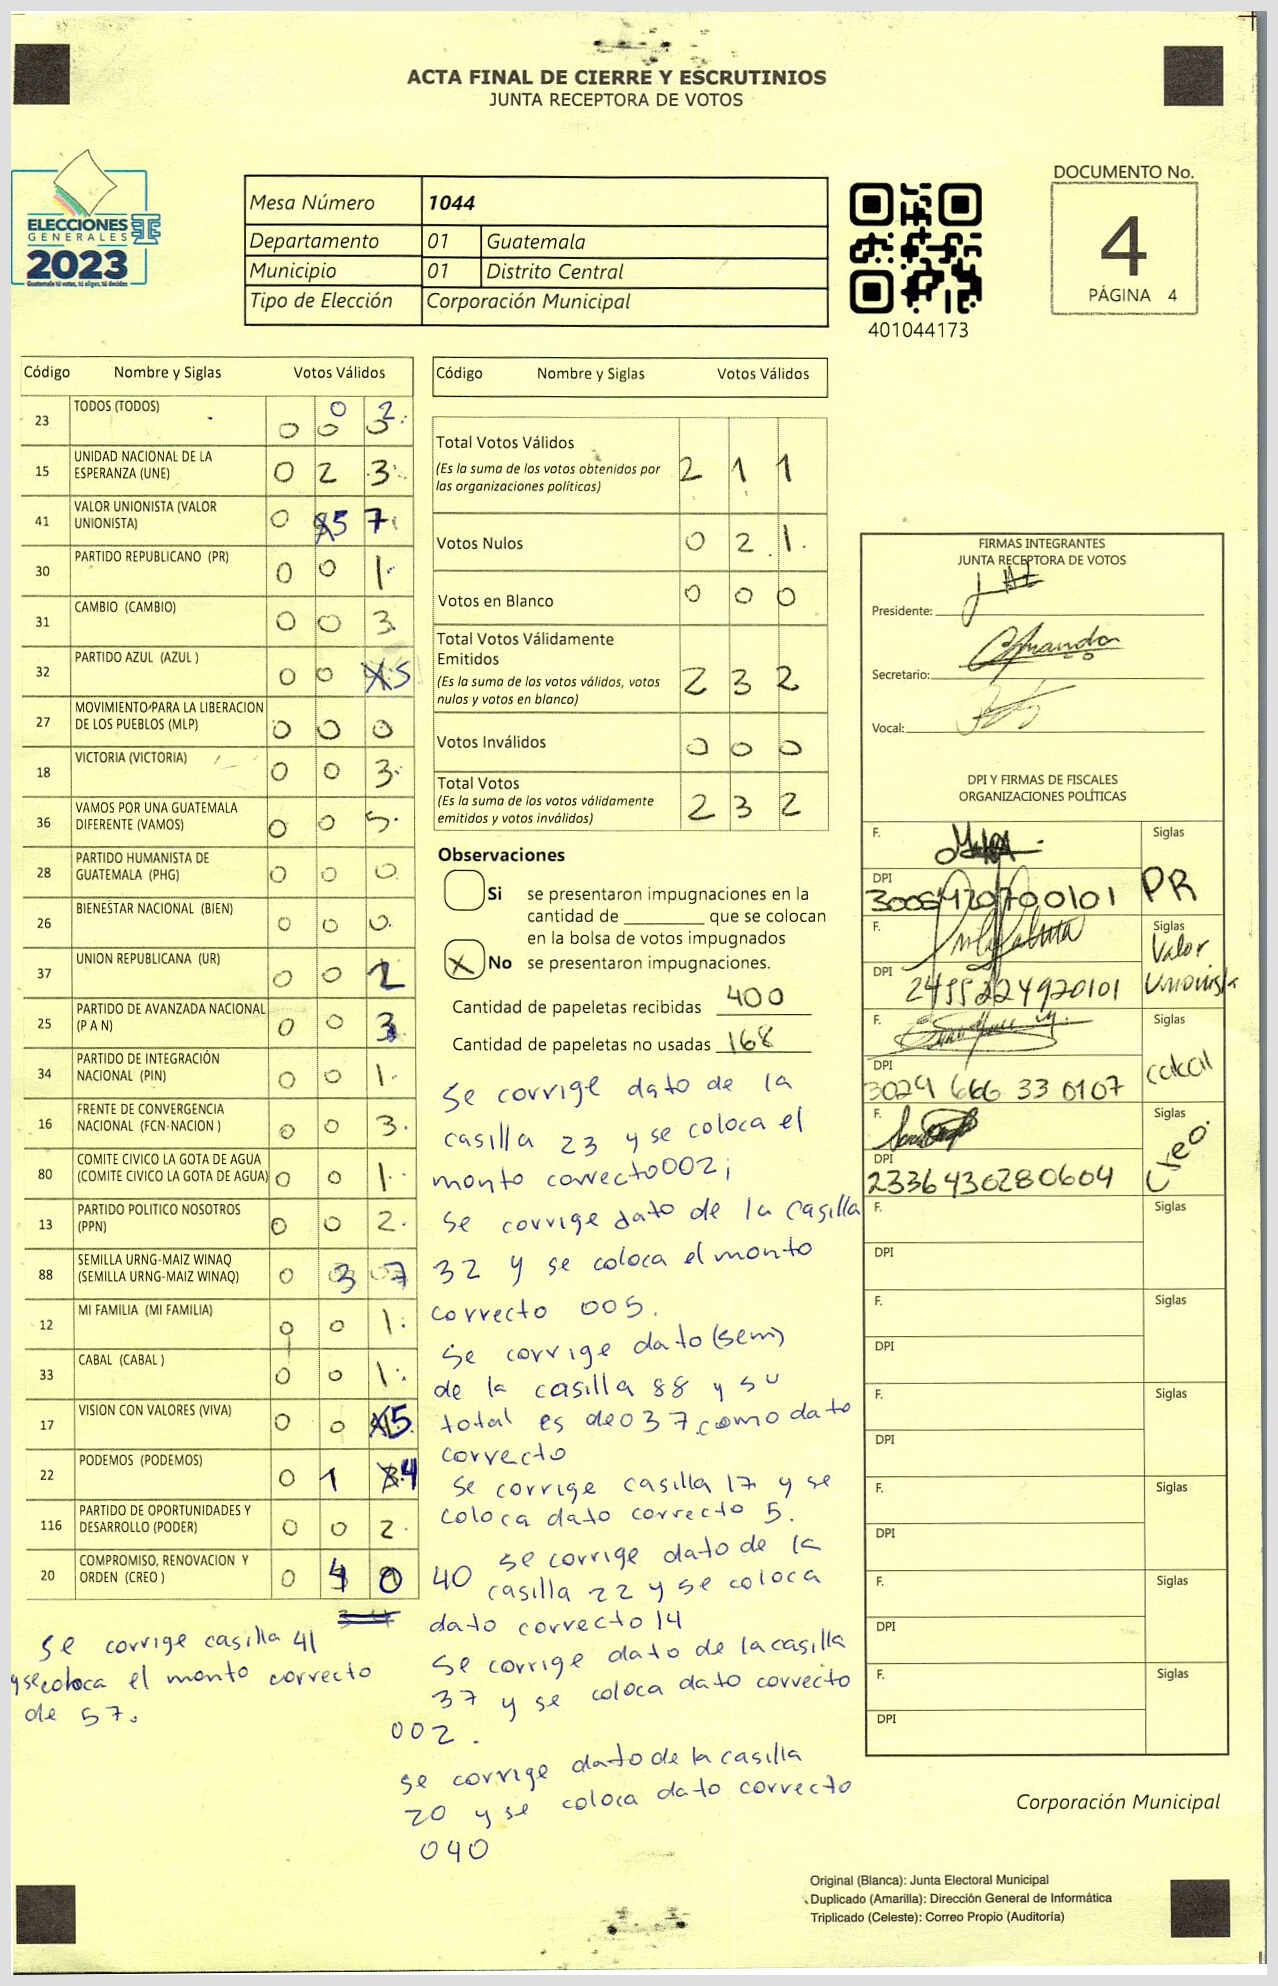 ACTA FINAL DE CIERRE Y ESCRUTINIOS
JUNTA RECEPTORA DE VOTOS
ELECCIONES
GENERALES
2023
Guatemala tú votas, tú eliges, tú decides
Mesa Número 1044
Departamento 01 Guatemala
Municipio 01 Distrito Central
Tipo de Elección Corporación Municipal
401044173
DOCUMENTO No.
4
PÁGINA 4
Código Nombre y Siglas Votos Válidos
23 TODOS (TODOS) 0 0 2
15 UNIDAD NACIONAL DE LA ESPERANZA (UNE) 0 2 3
41 VALOR UNIONISTA (VALOR UNIONISTA) 0 5 7
30 PARTIDO REPUBLICANO (PR) 0 0 1
31 CAMBIO (CAMBIO) 0 0 3
32 PARTIDO AZUL (AZUL ) 0 0 5
27 MOVIMIENTO PARA LA LIBERACION DE LOS PUEBLOS (MLP) 0 0 0
18 VICTORIA (VICTORIA) 0 0 3
36 VAMOS POR UNA GUATEMALA DIFERENTE (VAMOS) 0 0 5
28 PARTIDO HUMANISTA DE GUATEMALA (PHG) 0 0 0
26 BIENESTAR NACIONAL (BIEN) 0 0 0
37 UNION REPUBLICANA (UR) 0 0 2
25 PARTIDO DE AVANZADA NACIONAL (P A N) 0 0 3
34 PARTIDO DE INTEGRACIÓN NACIONAL (PIN) 0 0 1
16 FRENTE DE CONVERGENCIA NACIONAL (FCN-NACION ) 0 0 3
80 COMITE CIVICO LA GOTA DE AGUA (COMITE CIVICO LA GOTA DE AGUA) 0 0 1
13 PARTIDO POLITICO NOSOTROS (PPN) 0 0 2
88 SEMILLA URNG-MAIZ WINAQ (SEMILLA URNG-MAIZ WINAQ) 0 3 7
12 MI FAMILIA (MI FAMILIA) 0 0 1
33 CABAL (CABAL ) 0 0 1
17 VISION CON VALORES (VIVA) 0 0 5
22 PODEMOS (PODEMOS) 0 1 4
116 PARTIDO DE OPORTUNIDADES Y DESARROLLO (PODER) 0 0 2
20 COMPROMISO, RENOVACION Y ORDEN (CREO ) 0 4 0
se corrige casilla 41
y se coloca el monto correcto
de 57.
Código Nombre y Siglas Votos Válidos
Total Votos Válidos 2 1 1
(Es la suma de los votos obtenidos por
las organizaciones políticas)
Votos Nulos 0 2 1
Votos en Blanco 0 0 0
Total Votos Válidamente
Emitidos 2 3 2
(Es la suma de los votos válidos, votos
nulos y votos en blanco)
Votos Inválidos 0 0 0
Total Votos 2 3 2
(Es la suma de los votos válidamente
emitidos y votos inválidos)
Observaciones
Si se presentaron impugnaciones en la
cantidad de ________ que se colocan
en la bolsa de votos impugnados
X No se presentaron impugnaciones.
Cantidad de papeletas recibidas 400
Cantidad de papeletas no usadas 168
se corrige dato de la
casilla 23 y se coloca el
monto correcto 002;
se corrige dato de la casilla
32 y se coloca el monto
correcto 005.
se corrige dato (semi)
de la casilla 88 y su
total es de 037 como dato
correcto
se corrige casilla 17 y se
coloca dato correcto 5.
40 se corrige dato de la
casilla 22 y se coloca
dato correcto 14
se corrige dato de la casilla
37 y se coloca dato correcto
002.
se corrige dato de la casilla
20 y se coloca dato correcto
040
FIRMAS INTEGRANTES
JUNTA RECEPTORA DE VOTOS
Presidente:
Secretario:
Vocal:
DPI Y FIRMAS DE FISCALES
ORGANIZACIONES POLÍTICAS
F. Siglas
DPI PR
F. Siglas
DPI Valor Unionista
F. Siglas
DPI 3029 666 33 0107 cabal
F. Siglas
DPI 2336430280604 Creo.
F. Siglas
DPI
F. Siglas
DPI
F. Siglas
DPI
F. Siglas
DPI
F. Siglas
DPI
F. Siglas
DPI
Corporación Municipal
Original (Blanca): Junta Electoral Municipal
Duplicado (Amarilla): Dirección General de Informática
Triplicado (Celeste): Correo Propio (Auditoría)